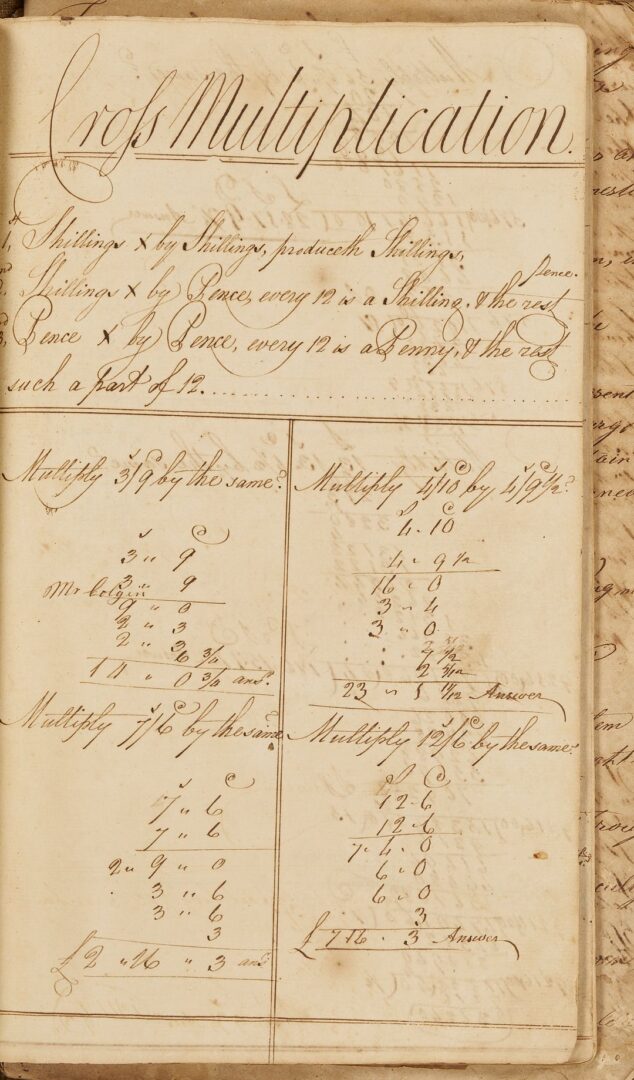 Cross Multiplication.
1st, Shillings × by Shillings, produceth Shillings,
2nd, Shillings × by Pence, every 12 is a Shilling, & the rest pence.
3d, Pence × by Pence, every 12 is a Penny, & the rest
such a part of 12.
Multiply 3/9 by the same?
s d
3 " 9
3 " 9
Mr Colgin
9 " 0
2 " 3
2 " 3
6 3/4
14 " 0 3/4 ansr
Multiply 7/6 by the same
s d
7 " 6
7 " 6
2 " 9 " 0
3 " 6
3 " 6
3
£ 2 " 16 " 3 ansr
Multiply 4/10 by 4/9 1/2?
S d
4 " 10
4 " 9 1/2
16 " 0
3 " 4
3 " 0
7 1/2
23 " 1 11/12 Answer
Multiply 12/6 by the same?
S d
12 " 6
12 " 6
7 " 4 " 0
6 " 0
6 " 0
3
£ 7 " 16 " 3 Answer